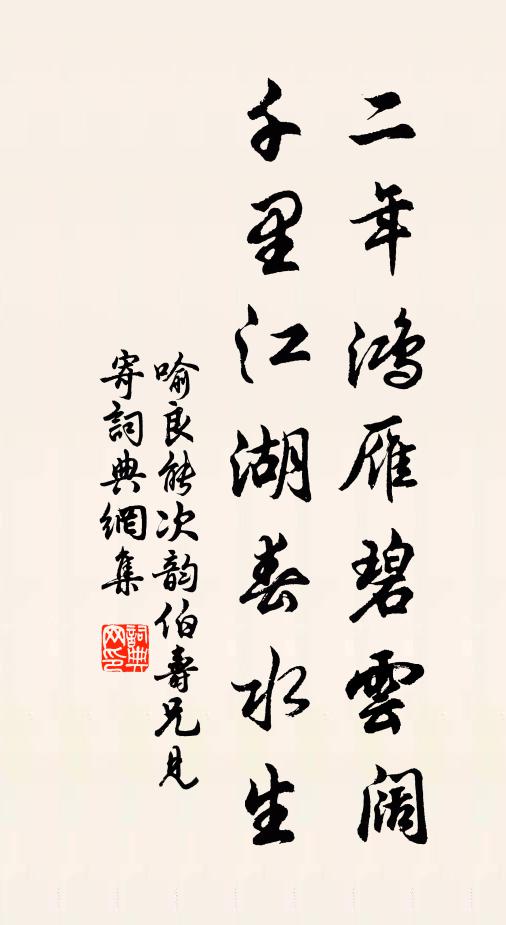 二年鸿雁碧雲阔
千里江湖春水生
喻良能次韵伯壽兄見
寄詞典網集
詞典網印